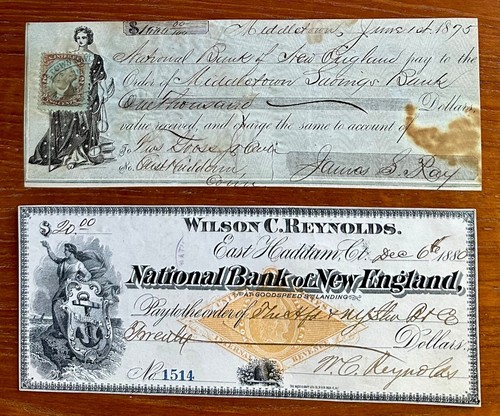 $1000 00/100 Middletown, June 1st 1875
National Bank of New England pay to the
Order of Middletown Savings Bank
One Thousand Dollars
value received, and charge the same to account of
To
No. East Haddam, James S. Ray
Conn
WILSON C. REYNOLDS.
$20.00 East Haddam, Ct. Dec 6th 1880
National Bank of New England,
AT GOODSPEED'S LANDING
Pay to the order of The
Twenty Dollars.
No. 1514 W.C. Reynolds